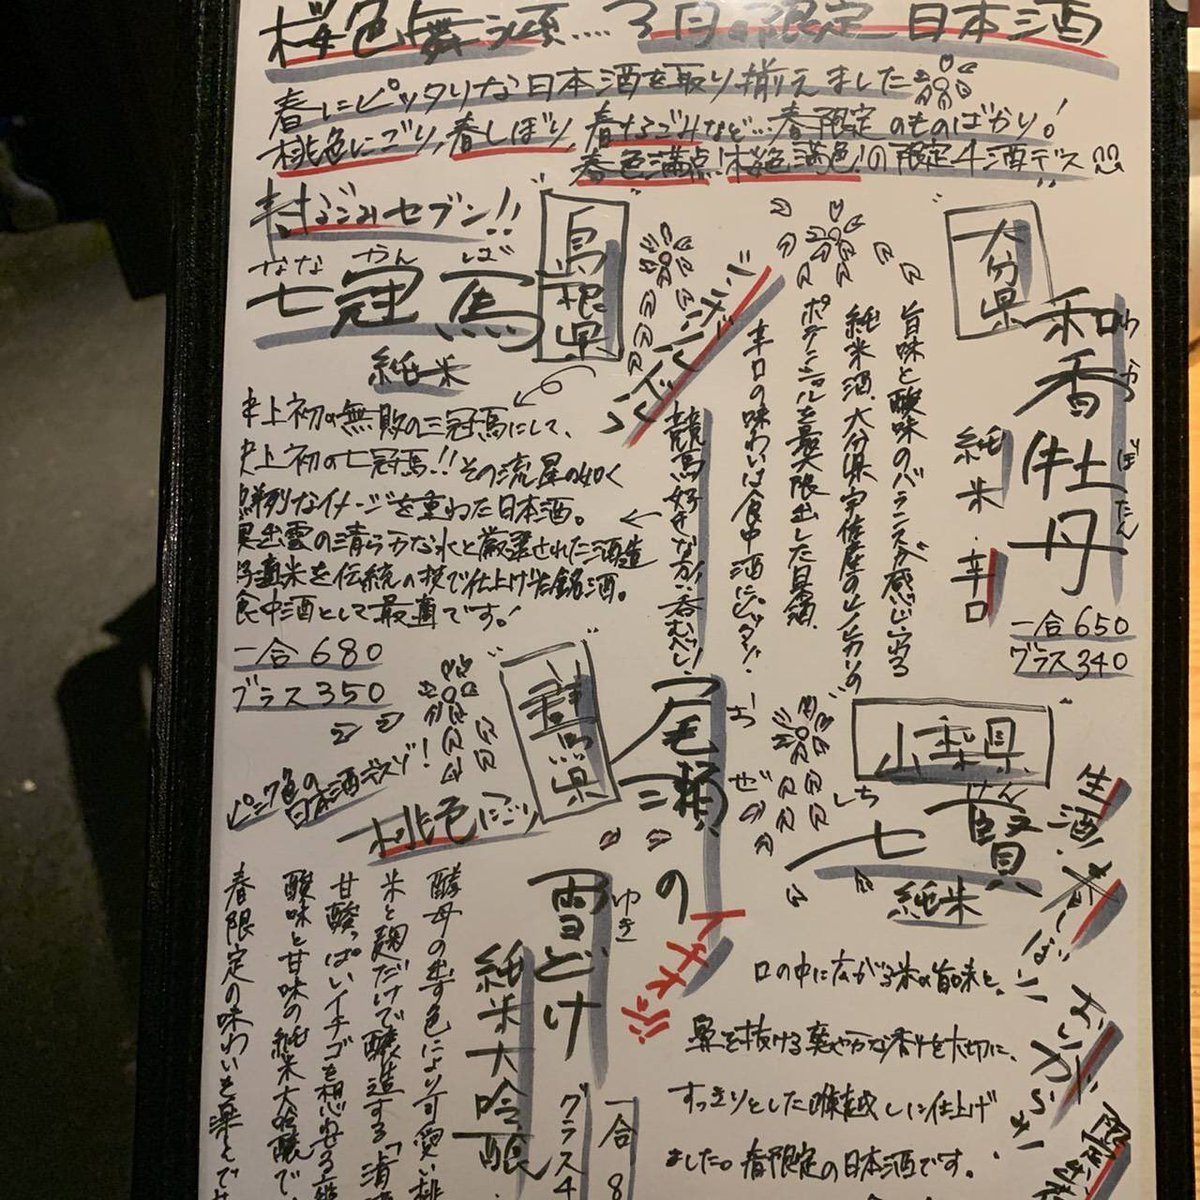 桜色舞う頃....3月の限定日本酒
春にピッタリな日本酒を取り揃えました
桃色にごり,春しぼり,春なごみなど...春限定のものばかり!
春色満点!桜絶満色!の限定4酒デス
なごみセブン!!
ななかんば
七冠馬
島根県
純米
史上初の無敗の三冠馬にして、
史上初の七冠馬!!その流星の如く
鮮烈なイメージを重ねた日本酒。
奥出雲の清らかな水と厳選された酒造
好適米を伝統の技で仕上げた銘酒。
食中酒として最適です!
一合680
グラス350
競馬好きな方!呑むべし!
大分県
わかぼたん
和香牡丹
純米・辛口
旨味と酸味のバランスが感じられる
純米酒。大分県宇佐産のヒノヒカリの
ポテンシャルを最大限出した日本酒。
辛口の味わいは食中酒にピッタリ!
一合650
グラス340
群馬県
おぜ
尾瀬の
ゆき
雪どけ
純米大吟醸
桃色にごり
ピンク色の
日本酒デスゾ!
酵母の出す色により可愛い桃
米と麹だけで醸造する「清
甘酸っぱいイチゴを想わせる
酸味と甘味の純米大吟醸で、
春限定の味わいを楽しんで
一合8
グラス4
イチオシ
山梨県
しちけん
七賢
純米
生酒 春しぼり
口の中に広がる米の旨味と、
鼻を抜ける華やかな香りを大切に、
すっきりとした喉越しに仕上げ
ました。春限定の日本酒です。